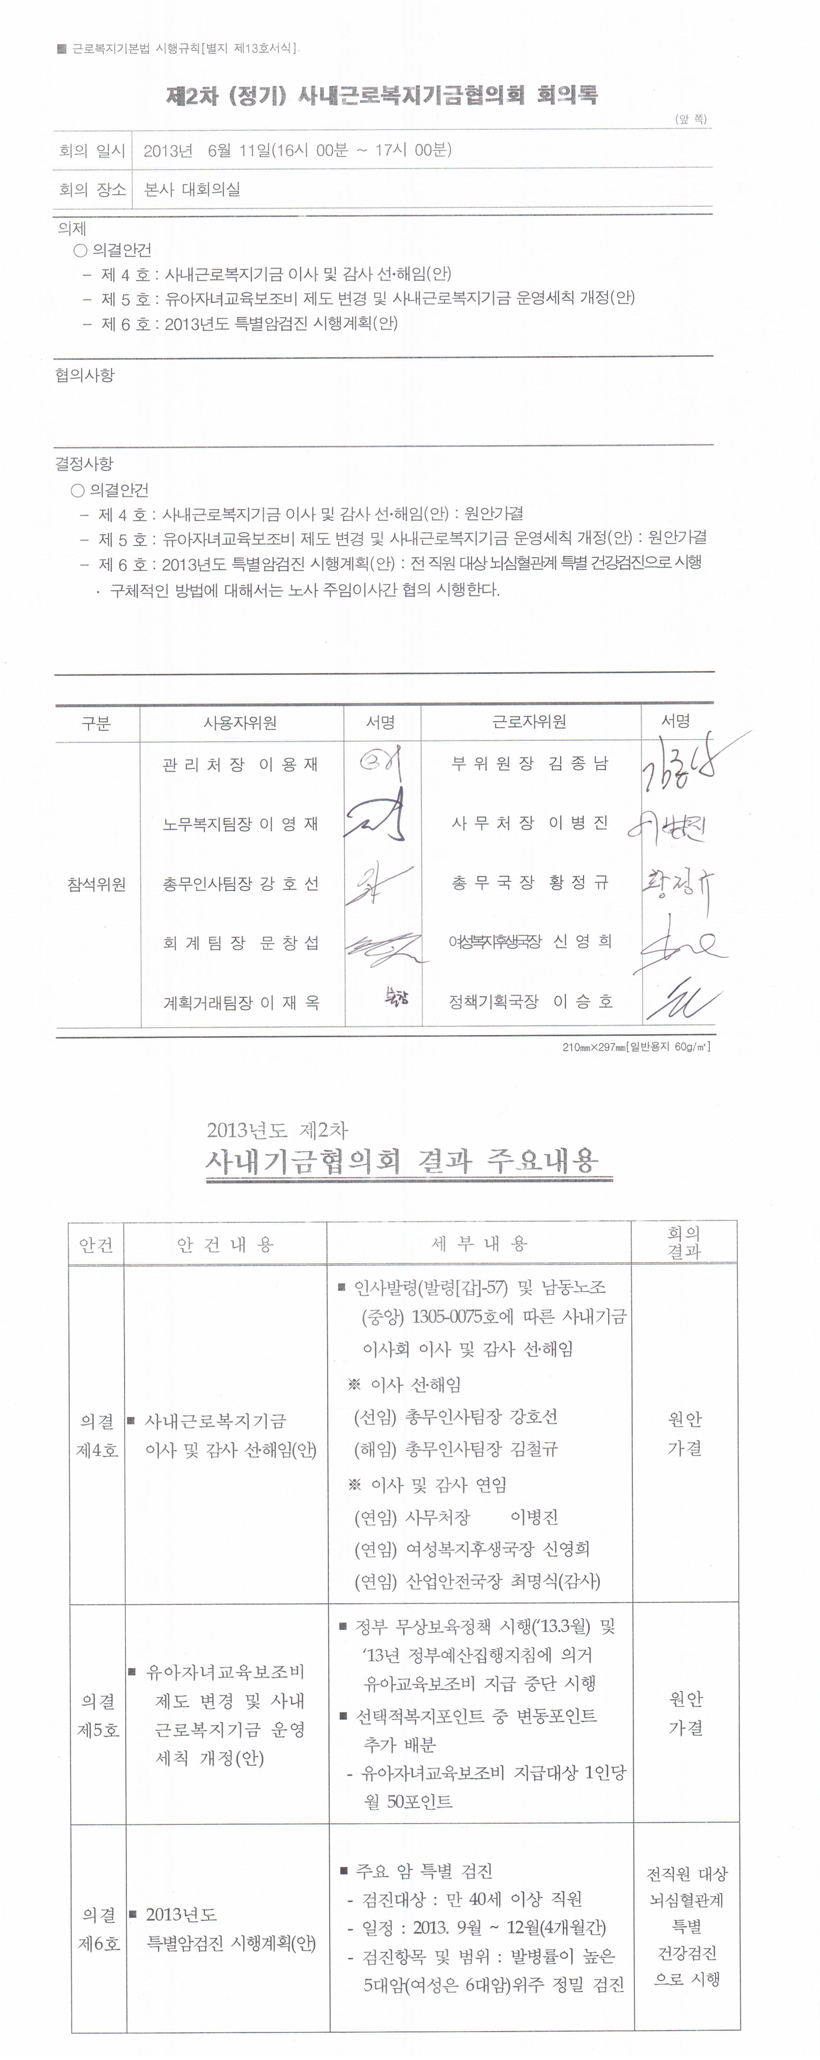 ■ 근로복지기본법 시행규칙[별지 제13호서식].
제2차 (정기) 사내근로복지기금협의회 회의록
(앞 쪽)
회의 일시 2013년 6월 11일(16시 00분 ~ 17시 00분)
회의 장소 본사 대회의실
의제
○ 의결안건
- 제 4 호 : 사내근로복지기금 이사 및 감사 선·해임(안)
- 제 5 호 : 유아자녀교육보조비 제도 변경 및 사내근로복지기금 운영세칙 개정(안)
- 제 6 호 : 2013년도 특별암검진 시행계획(안)
협의사항
결정사항
○ 의결안건
- 제 4 호 : 사내근로복지기금 이사 및 감사 선·해임(안) : 원안가결
- 제 5 호 : 유아자녀교육보조비 제도 변경 및 사내근로복지기금 운영세칙 개정(안) : 원안가결
- 제 6 호 : 2013년도 특별암검진 시행계획(안) : 전 직원 대상 뇌심혈관계 특별 건강검진으로 시행
· 구체적인 방법에 대해서는 노사 주임이사간 협의 시행한다.
구분 사용자위원 서명 근로자위원 서명
관 리 처 장 이 용 재 부 위 원 장 김 종 남 김종남
노무복지팀장 이 영 재 사 무 처 장 이 병 진 이병진
참석위원 총무인사팀장 강 호 선 총 무 국 장 황 정 규 황정규
회 계 팀 장 문 창 섭 여성복지후생국장 신 영 희
계획거래팀장 이 재 옥 정책기획국장 이 승 호
210㎜×297㎜[일반용지 60g/㎡]
2013년도 제2차
사내기금협의회 결과 주요내용
안건 안 건 내 용 세 부 내 용 회의
결과
■ 인사발령(발령[갑]-57) 및 남동노조
(중앙) 1305-0075호에 따른 사내기금
이사회 이사 및 감사 선·해임
※ 이사 선·해임
의결 ■ 사내근로복지기금 (선임) 총무인사팀장 강호선 원안
제4호 이사 및 감사 선·해임(안) (해임) 총무인사팀장 김철규 가결
※ 이사 및 감사 연임
(연임) 사무처장 이병진
(연임) 여성복지후생국장 신영희
(연임) 산업안전국장 최명식(감사)
■ 정부 무상보육정책 시행('13.3월) 및
'13년 정부예산집행지침에 의거
■ 유아자녀교육보조비 유아교육보조비 지급 중단 시행
의결 제도 변경 및 사내 ■ 선택적복지포인트 중 변동포인트 원안
제5호 근로복지기금 운영 추가 배분 가결
세칙 개정(안) - 유아자녀교육보조비 지급대상 1인당
월 50포인트
■ 주요 암 특별 검진 전직원 대상
- 검진대상 : 만 40세 이상 직원 뇌심혈관계
의결 ■ 2013년도 - 일정 : 2013. 9월 ~ 12월(4개월간) 특별
제6호 특별암검진 시행계획(안) - 검진항목 및 범위 : 발병률이 높은 건강검진
5대암(여성은 6대암)위주 정밀 검진 으로 시행